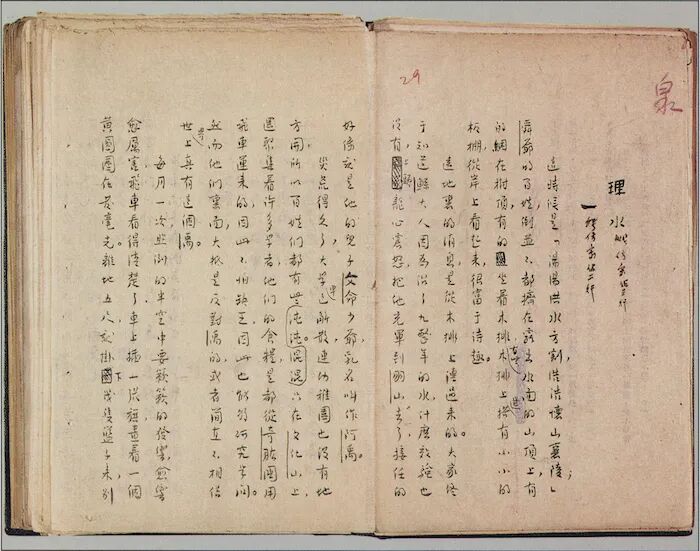 泉
29
理水
一
這時候是「湯湯洪水方割，浩浩懷山襄陵」；
舜爺的百姓，倒並不都擠在露出水面的山頂上，有
的綑在樹頂，有的坐着木排，有些木排上還搭有小小的
板棚，從岸上看起來，很富于詩趣。
遠地裏的消息，是從木排上傳過來的。大家終
于知道鯀大人因為治了九整年的水，什麼效驗也
沒有，上頭龍心震怒，把他充軍到羽山去了，接任的
好像就是他的兒子文命少爺，乳名叫作阿禹。
災荒得久了，大學早已解散，連幼稚園也沒有地
方開，所以百姓們都有些混混沌沌。只在文化山上，
還聚集着許多學者，他們的食糧，是都從奇肱國用
飛車運來的，因此不怕缺乏，因此也能夠研究學問。
然而他們裏面，大抵是反對禹的，或者簡直不相信
世上真有這個禹。
每月一次，照例的半空中要簌簌的發響，愈響
愈厲害，飛車看得清楚了，車上插一張旗，畫着一個
黃圓圈在發毫光。離地五尺，就掛下幾隻籃子來，別